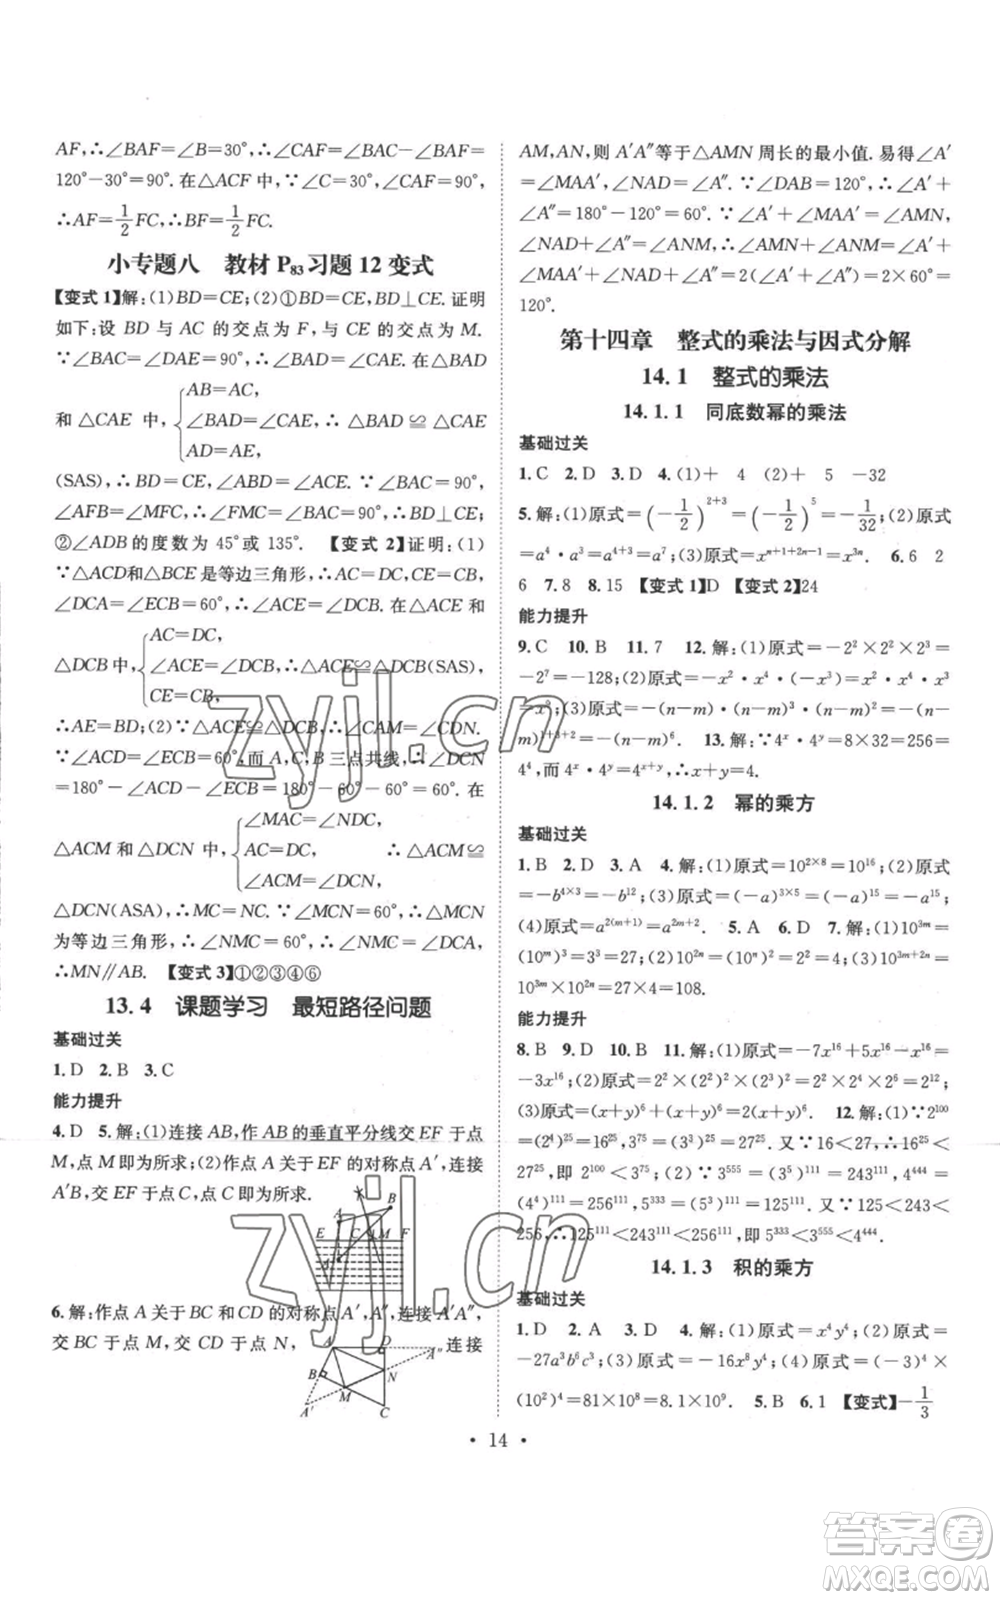 AF,∴∠BAF=∠B=30°,∴∠FAC=∠BAC-∠BAF=
120°-30°=90°. 在△ACF 中,∵∠C=30°,∠CAF=90°,
∴AF=1/2FC,∴BF=1/2FC.
小专题八 教材 P83习题 12 变式
【变式 1】解:(1)BD=CE;(2)①BD=CE,BD⊥CE. 证明
如下:设 BD 与 AC 的交点为 F,与 CE 的交点为 M.
∵∠BAC=∠DAE=90°,∴∠BAD=∠CAE. 在△BAD
AB=AC,
和△CAE 中,{∠BAD=∠CAE,∴△BAD≌△CAE
AD=AE,
(SAS),∴BD=CE,∠ABD=∠ACE. ∵∠BAC=90°,
∠AFB=∠MFC,∴∠FMC=∠BAC=90°,∴BD⊥CE;
②∠ADB 的度数为 45°或 135°. 【变式 2】证明:(1)
∵△ACD和△BCE 是等边三角形,∴AC=DC,CE=CB,
∠DCA=∠ECB=60°,∴∠ACE=∠DCB. 在△ACE 和
AC=DC,
△DCB 中,{∠ACE=∠DCB,∴△ACE≌△DCB(SAS),
CE=CB,
∴AE=BD;(2)∵△ACE≌△DCB,∴∠CAM=∠CDN.
∵∠ACD=∠ECB=60°,而 A,C,B 三点共线,∴∠DCN
=180°-∠ACD-∠ECB=180°-60°-60°=60°. 在
∠MAC=∠NDC,
△ACM 和△DCN 中,{AC=DC, ∴△ACM≌
∠ACM=∠DCN,
△DCN(ASA),∴MC=NC. ∵∠MCN=60°,∴△MCN
为等边三角形,∴∠NMC=60°,∴∠NMC=∠DCA,
∴MN∥AB. 【变式 3】①②③④⑥
13.4 课题学习 最短路径问题
基础过关
1.D 2.B 3.C
能力提升
4.D 5.解:(1)连接 AB,作 AB 的垂直平分线交 EF 于点
M,点 M 即为所求;(2)作点 A 关于 EF 的对称点 A′,连接
A′B,交 EF 于点 C,点 C 即为所求.
B
A
E C M F
6.解:作点 A 关于 BC 和 CD 的对称点 A′,A″,连接 A′A″,
交 BC 于点 M,交 CD 于点 N, 连接
A D A″
B N
M
A′ C
AM,AN,则 A′A″等于△AMN 周长的最小值. 易得∠A′
=∠MAA′,∠NAD=∠A″. ∵∠DAB=120°,∴∠A′+
∠A″=180°-120°=60°. ∵∠AMN=∠A′+∠MAA′,
∠ANM=∠NAD+∠A″,∴∠AMN+∠ANM=∠A′+
∠MAA′+∠NAD+∠A″=2(∠A′+∠A″)=2×60°=
120°.
第十四章 整式的乘法与因式分解
14.1 整式的乘法
14.1.1 同底数幂的乘法
基础过关
1.C 2.D 3.D 4.(1)+ 4 (2)+ 5 -32
5.解:(1)原式=(-1/2)²⁺³=(-1/2)⁵=-1/32;(2)原式
=a⁴·a³=a⁴⁺³=a⁷;(3)原式=xⁿ⁺¹⁺²ⁿ⁻¹=x³ⁿ. 6.6 2
6 7.8 8.15 【变式 1】D 【变式 2】24
能力提升
9.C 10.B 11.7 12.解:(1)原式=-2²×2²×2³=
-2⁷=-128;(2)原式=-x²·x⁴·(-x³)=x²·x⁴·x³
=x⁹;(3)原式=-(n-m)·(n-m)³·(n-m)²=-(n-
m)¹⁺³⁺²=-(n-m)⁶. 13.解:∵4ˣ·4ʸ=8×32=256=
4⁴,而 4ˣ·4ʸ=4ˣ⁺ʸ,∴x+y=4.
14.1.2 幂的乘方
基础过关
1.B 2.D 3.A 4.解:(1)原式=10²ˣ⁸=10¹⁶;(2)原式
=-b⁴ˣ³=-b¹²;(3)原式=(-a)³ˣ⁵=(-a)¹⁵=-a¹⁵;
(4)原式=a²⁽ᵐ⁺¹⁾=a²ᵐ⁺². 5.A 6.D 7.解:(1)10³ᵐ=
(10ᵐ)³=3³=27;(2)10²ⁿ=(10ⁿ)²=2²=4;(3)10³ᵐ⁺²ⁿ=
10³ᵐ×10²ⁿ=27×4=108.
能力提升
8.B 9.D 10.B 11.解:(1)原式=-7x¹⁶+5x¹⁶-x¹⁶=
-3x¹⁶;(2)原式=2²×(2²)²×(2³)²=2²×2⁴×2⁶=2¹²;
(3)原式=(x+y)⁶+(x+y)⁶=2(x+y)⁶. 12.解:(1)∵2¹⁰⁰
=(2⁴)²⁵=16²⁵,3⁷⁵=(3³)²⁵=27²⁵. 又∵16<27,∴16²⁵<
27²⁵,即 2¹⁰⁰<3⁷⁵;(2)∵3⁵⁵⁵=(3⁵)¹¹¹=243¹¹¹,4⁴⁴⁴=
(4⁴)¹¹¹=256¹¹¹,5³³³=(5³)¹¹¹=125¹¹¹. 又∵125<243<
256,∴125¹¹¹<243¹¹¹<256¹¹¹,即 5³³³<3⁵⁵⁵<4⁴⁴⁴.
14.1.3 积的乘方
基础过关
1.D 2.A 3.D 4.解:(1)原式=x⁴y⁴;(2)原式=
-27a³b⁶c³;(3)原式=-16x⁸y¹²;(4)原式=(-9)²×
(10²)⁴=81×10⁸=8.1×10⁹. 5.B 6.1 【变式】-1/3
• 14 •
zyjl.cn
zyjl.cn
答案圈
MXQE.COM